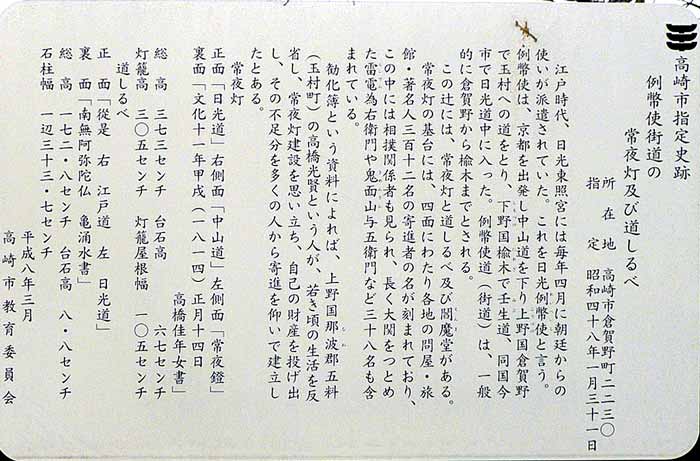 高崎市指定史跡
例幣使街道の
常夜灯及び道しるべ
所在地 高崎市倉賀野町二二三〇
指定 昭和四十八年一月三十一日
江戸時代、日光東照宮には毎年四月に朝廷からの
使いが派遣されていた。これを日光例幣使と言う。
例幣使は、京都を出発し中山道を下り上野国倉賀野
で玉村への道をとり、下野国楡木で壬生道、同国今
市で日光道中に入った。例幣使道(街道)は、一般
的に倉賀野から楡木までとされる。
この辻には、常夜灯と道しるべ及び閻魔堂がある。
常夜灯の基台には、四面にわたり各地の問屋・旅
館・著名人三百十二名の寄進者の名が刻まれており、
この中には相撲関係者も見られ、長く大関をつとめ
た雷電為右衛門や鬼面山与五衛門など三十八名も含
まれている。
勧化簿という資料によれば、上野国那波郡五料
(玉村町)の高橋光賢という人が、若き頃の生活を反
省し、常夜灯建設を思い立ち、自己の財産を投げ出
し、その不足分を多くの人から寄進を仰いで建立し
たとある。
常夜灯
正面「日光道」右側面「中山道」左側面「常夜鐙」
裏面「文化十一年甲戌(一八一四)正月十四日
高橋佳年女書」
総高 三七三センチ 台石高 六七センチ
灯籠高 三〇五センチ 灯籠屋根幅 一〇五センチ
道しるべ
正面「從是 右 江戸道 左 日光道」
裏面「南無阿弥陀仏 亀涌水書」
総高 一七二・八センチ 台石高 八・八センチ
石柱幅 一辺三十三・七センチ
平成八年三月
高崎市教育委員会